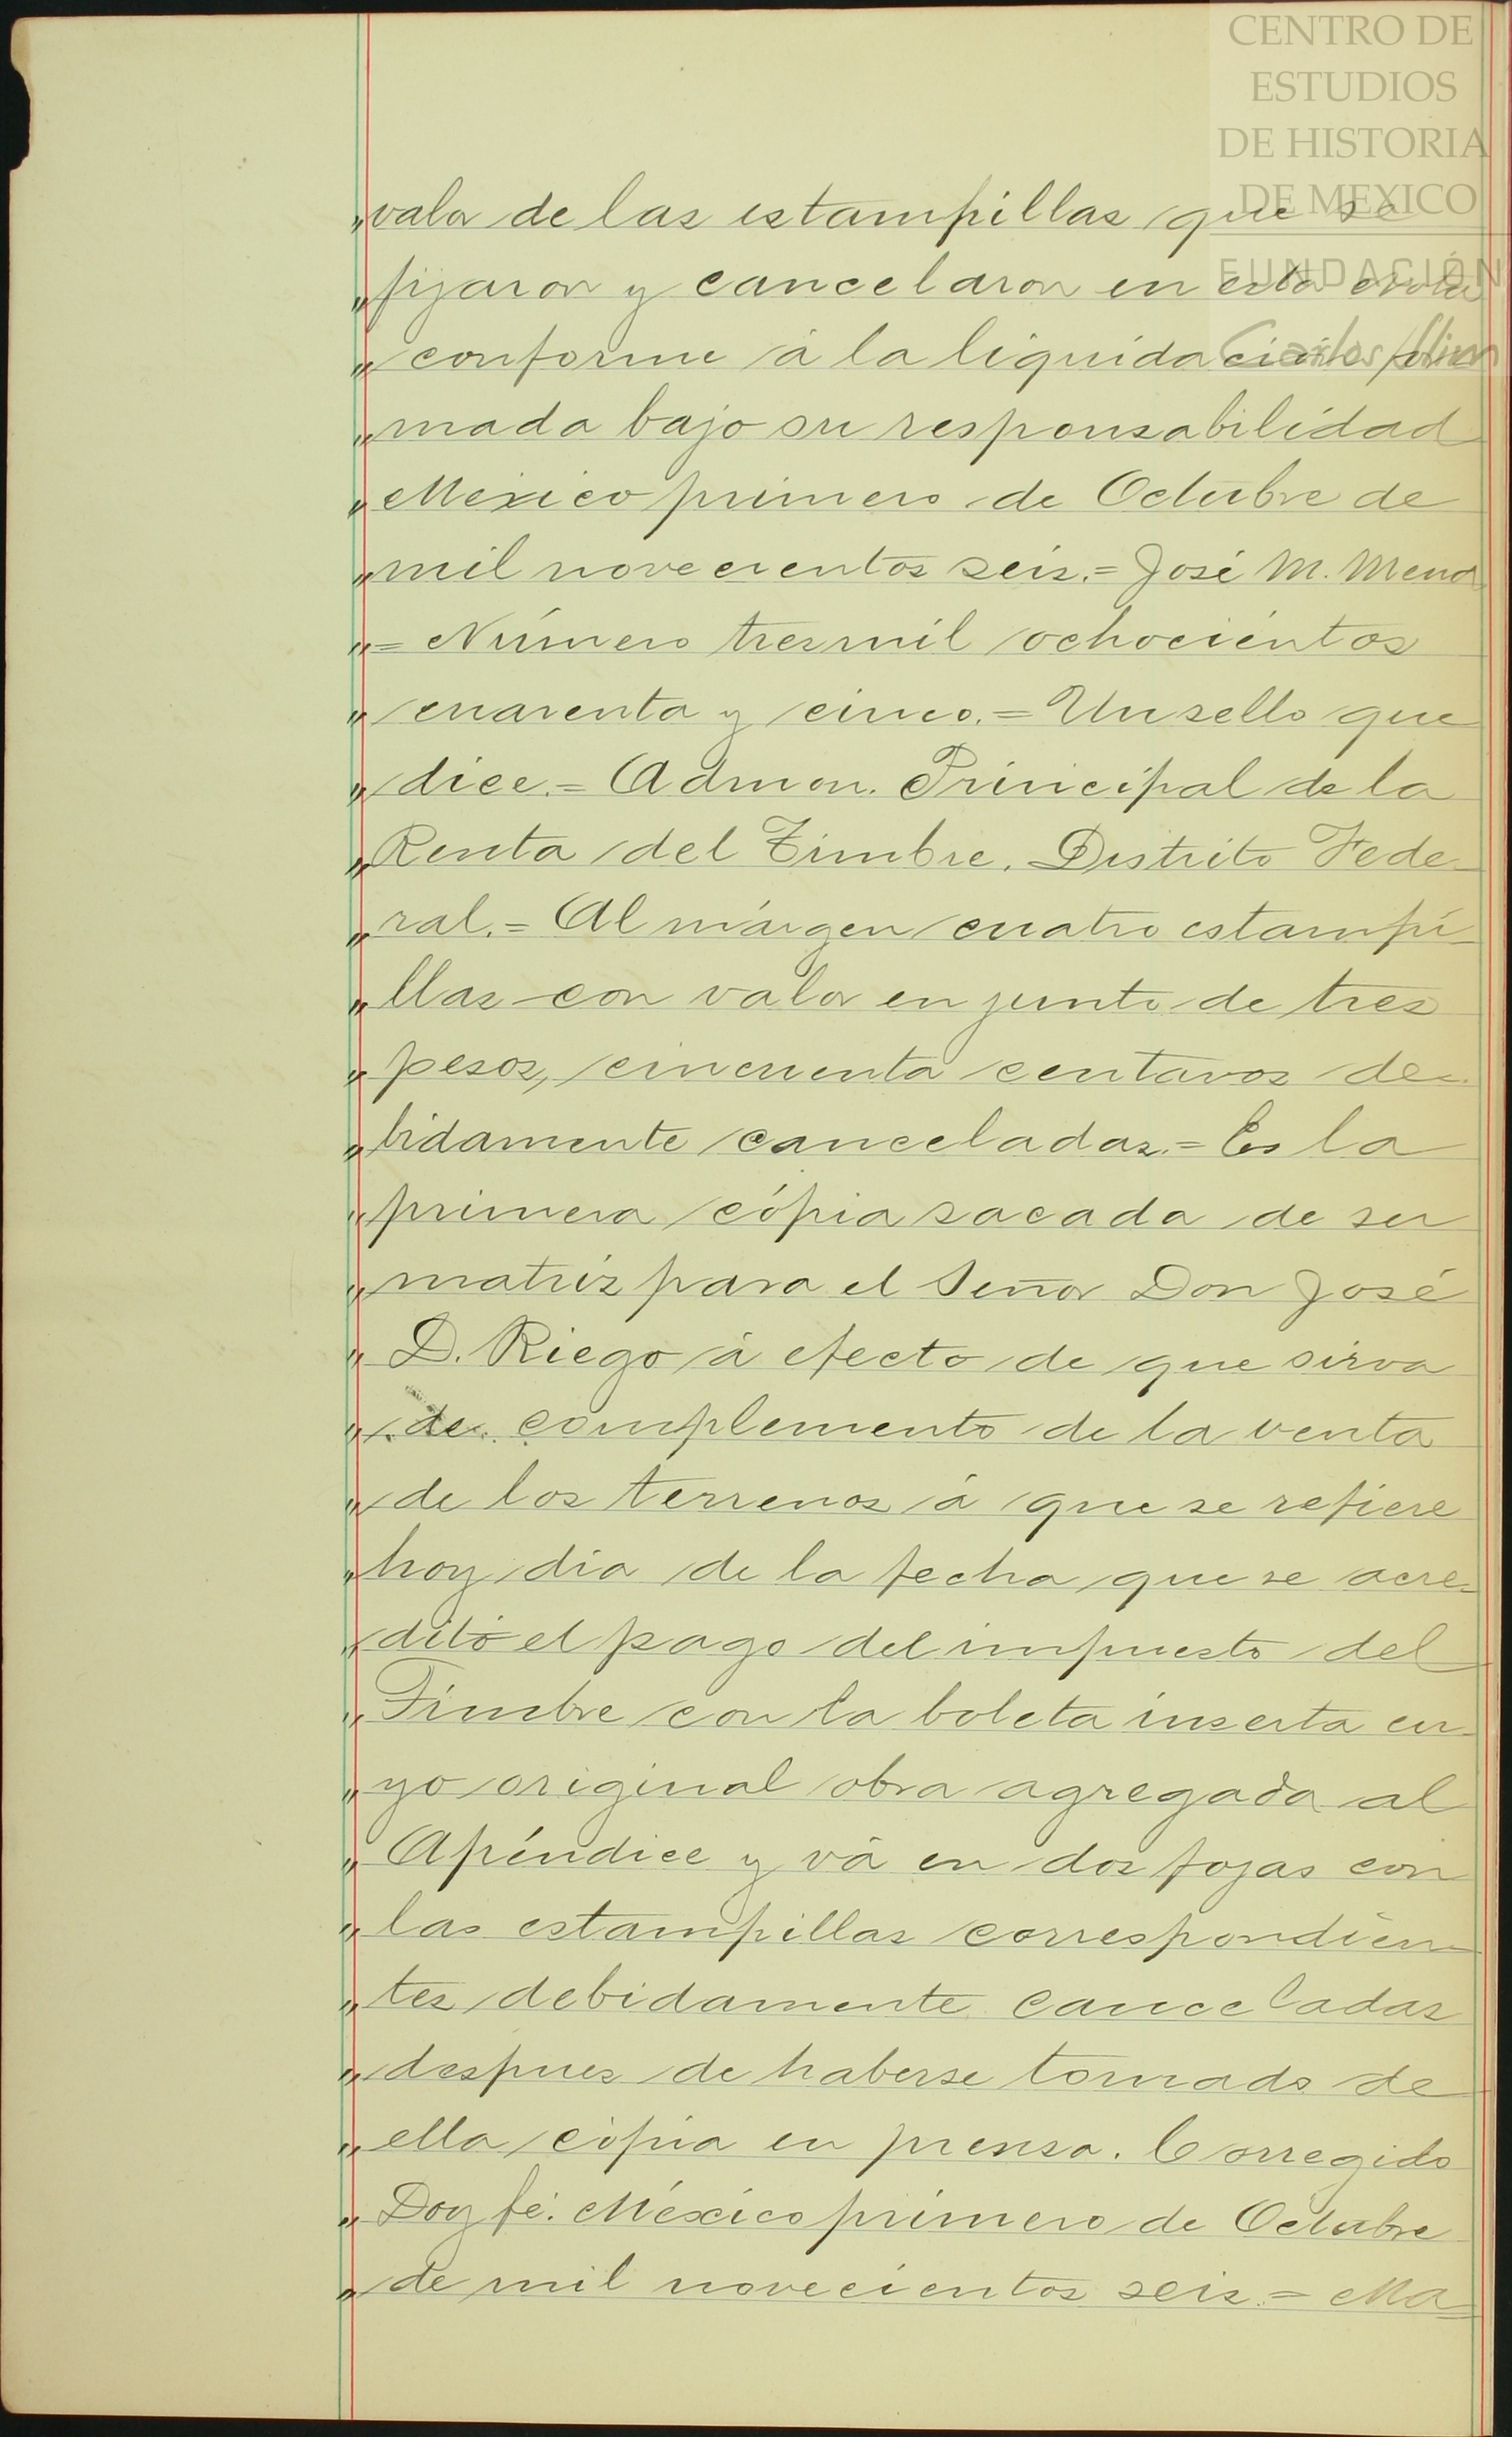 CENTRO DE
ESTUDIOS
DE HISTORIA
DE MEXICO
FUNDACIÓN
Carlos Slim
„valor de las estampillas que se
„fijaron y cancelaron en esta
„conforme á la liquidación for
„mada bajo su responsabilidad
„México primero de Octubre de
„mil novecientos seis.= José M. Mena
„= Número tresmil ochocientos
„cuarenta y cinco.= Un sello que
„dice.= Admon. Principal de la
„Renta del Timbre. Distrito Fede-
„ral.= Al márgen cuatro estampi-
„llas con valor en junto de tres
„pesos, cincuenta centavos de-
„bidamente canceladas.= Es la
„primera cópia sacada de su
„matriz para el Señor Don José
„D. Riego á efecto de que sirva
„de complemento de la venta
„de los terrenos á que se refiere
„hoy dia de la fecha que se acre-
„ditó el pago del impuesto del
„Timbre con la boleta inserta cu-
„yo original obra agregada al
„Apéndice y vá en dos fojas con
„las estampillas correspondien-
„tes debidamente canceladas
„despues de haberse tomado de
„ella cópia en prensa. Corregido
„Doy fé. México primero de Octubre
„de mil novecientos seis.= Ma-